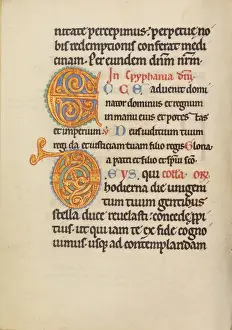 nitate percepimus. perpetue no
bis redemptionis conferat medi
cinam. Per eundem dnm nrm.
In epyphania dni
ECCE advenit domi
nator dominus et regnum
in manu eius et potestas
et imperium. Ps Deus iudicium tuum
regi da et iusticiam tuam filio regis Gloria
patri et filio et spiritui sco
DEUS, qui colla. or.
hodierna die unigeni
tum tuum gentibus
stella duce revelasti: concede ppi
tius. ut qui iam te ex fide cogno
vimus. usq ad contemplandam